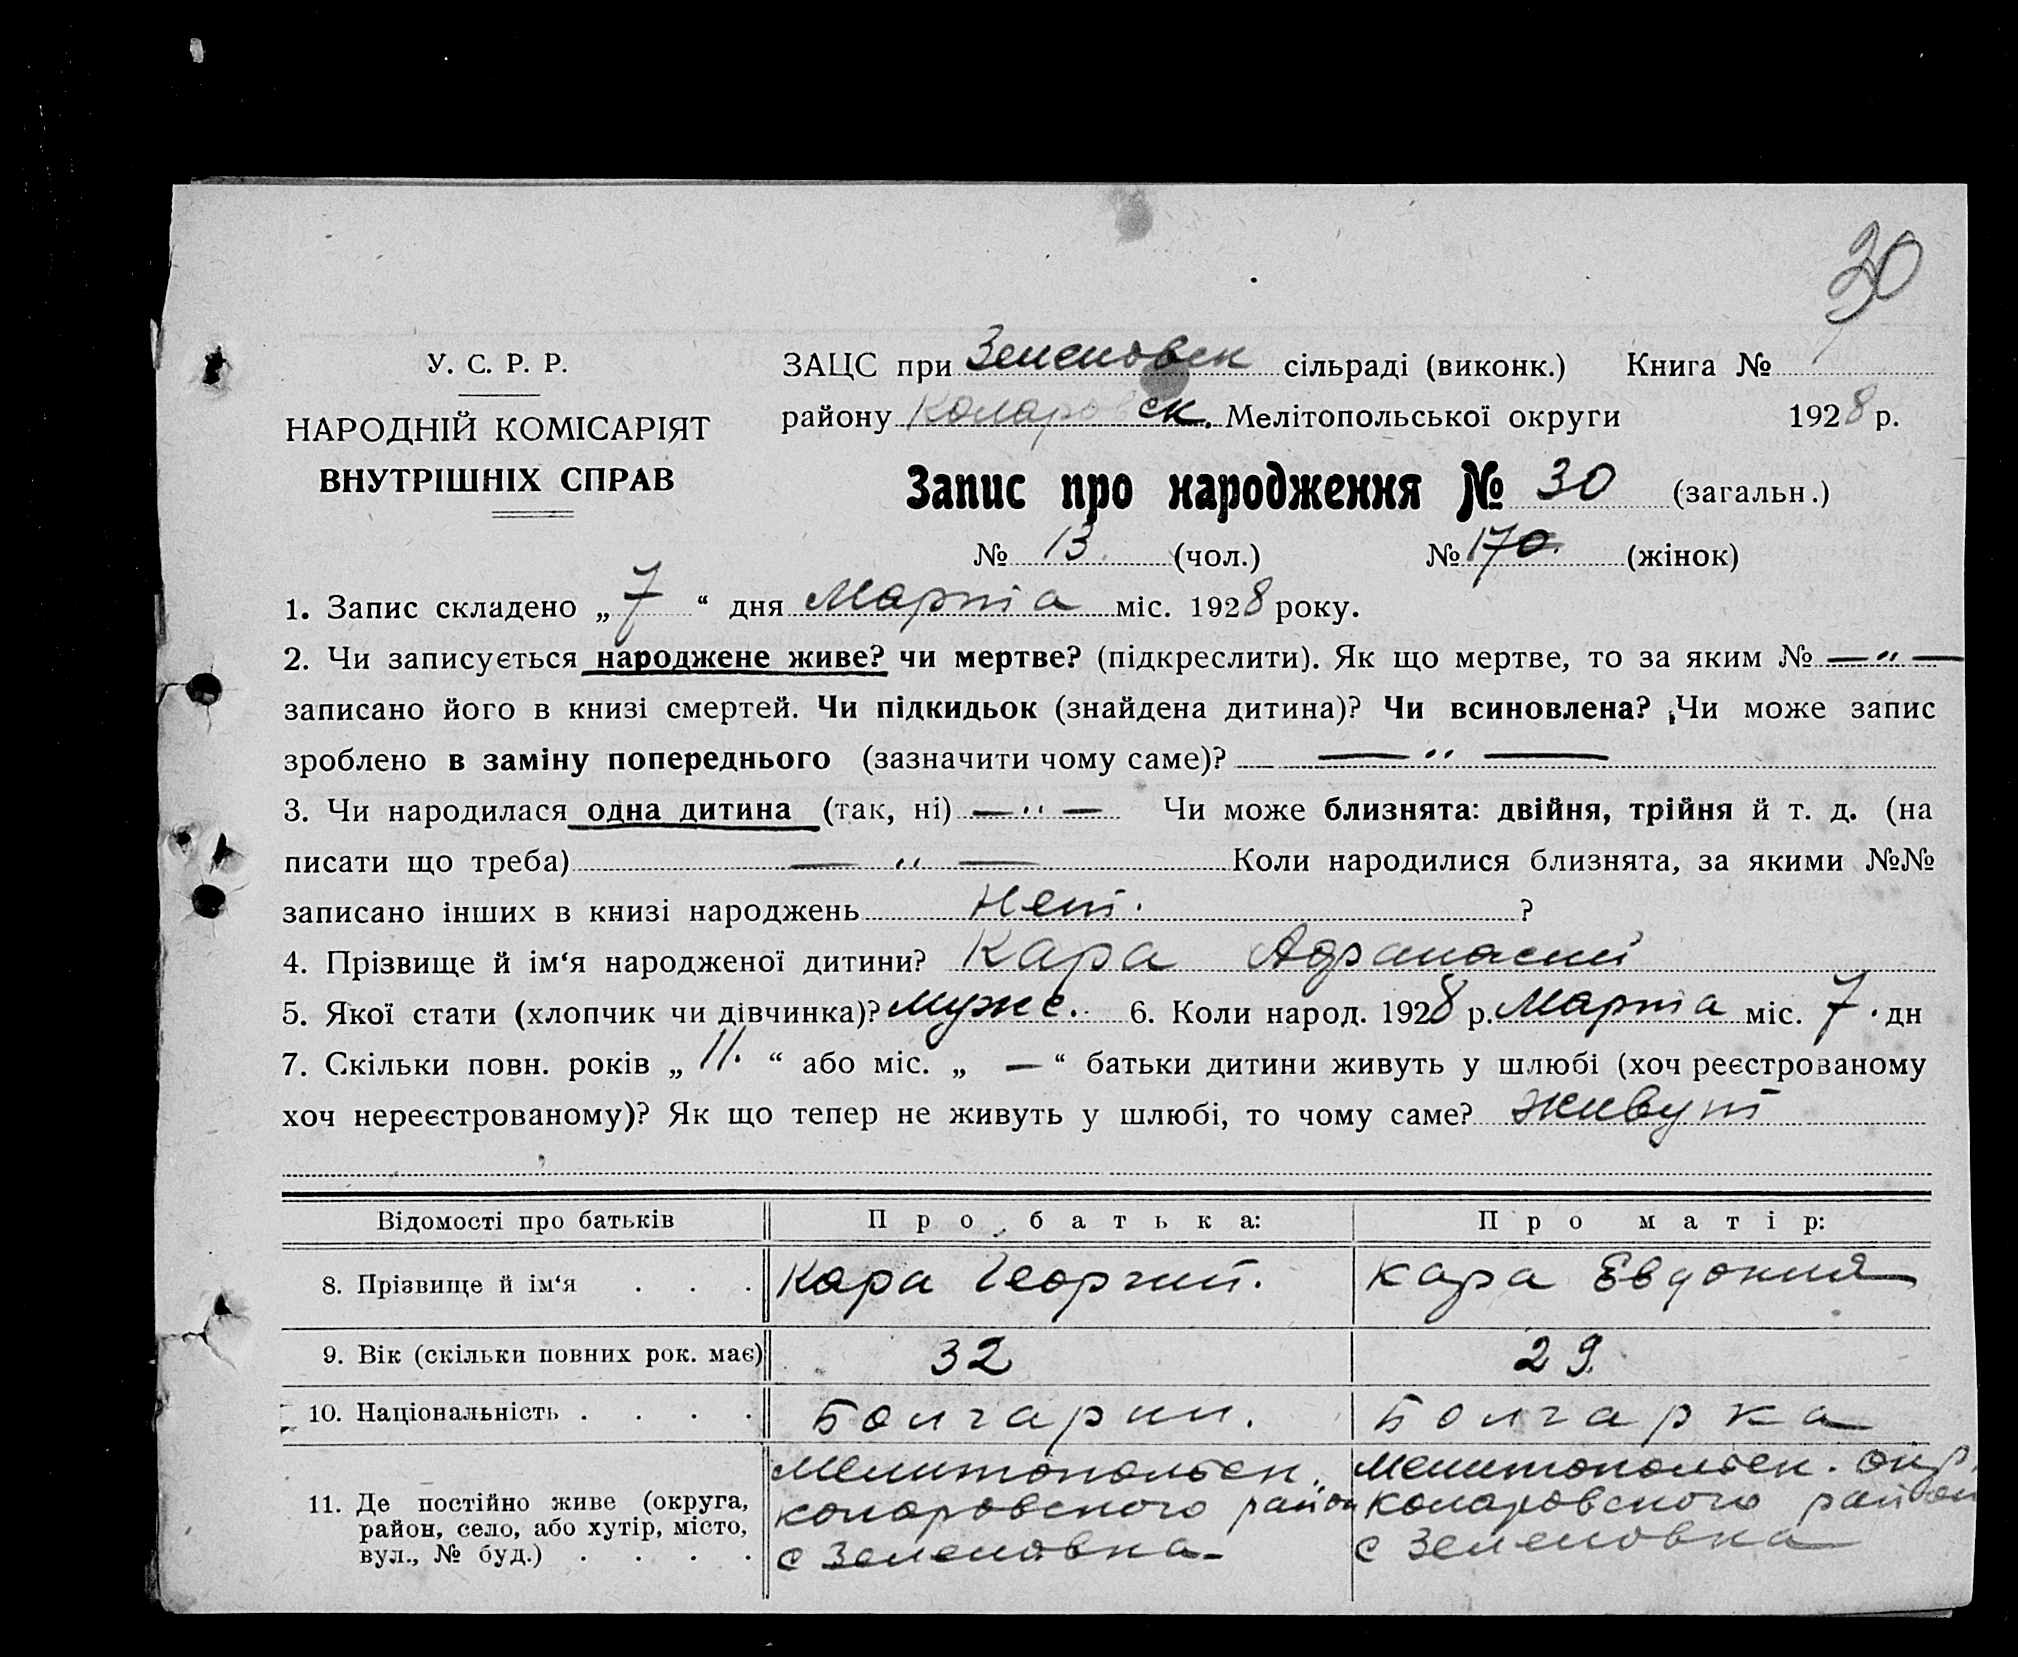 30
У. С. Р. Р.
НАРОДНІЙ КОМІСАРІЯТ
ВНУТРІШНІХ СПРАВ
ЗАЦС при Зеленовск сільраді (виконк.) Книга №
району Коларовск. Мелітопольської округи 1928 р.
Запис про народження № 30 (загальн.)
№ 13. (чол.) № 170. (жінок)
1. Запис складено „ 7 “ дня Марта міс. 1928 року.
2. Чи записується народжене живе? чи мертве? (підкреслити). Як що мертве, то за яким № — „ —
записано його в книзі смертей. Чи підкидьок (знайдена дитина)? Чи всиновлена? Чи може запис
зроблено в заміну попереднього (зазначити чому саме)? — „ —
3. Чи народилася одна дитина (так, ні) — „ — Чи може близнята: двійня, трійня й т. д. (на
писати що треба) — „ — Коли народилися близнята, за якими №№
записано інших в книзі народжень Нет. ?
4. Прізвище й ім‘я народженої дитини? Кара
5. Якої стати (хлопчик чи дівчинка)? Мужс. 6. Коли народ. 1928 р. Марта міс. 7. дн
7. Скільки повн. років „ 11. “ або міс. „ — “ батьки дитини живуть у шлюбі (хоч реєстрованому
хоч нереєстрованому)? Як що тепер не живуть у шлюбі, то чому саме? Живут
Відомості про батьків Про батька: Про матір:
8. Прізвище й ім‘я . . . Кара Георгий. Кара Евдокия
9. Вік (скільки повних рок. має) 32 29.
10. Національність . . . . Болгарин. Болгарка
11. Де постійно живе (округа,
район, село, або хутір, місто,
вул., № буд.) . . . .
Мелитопольск.
Коларовского район
с Зеленовка
Мелитопольск. окр.
Коларовского район
с Зеленовка